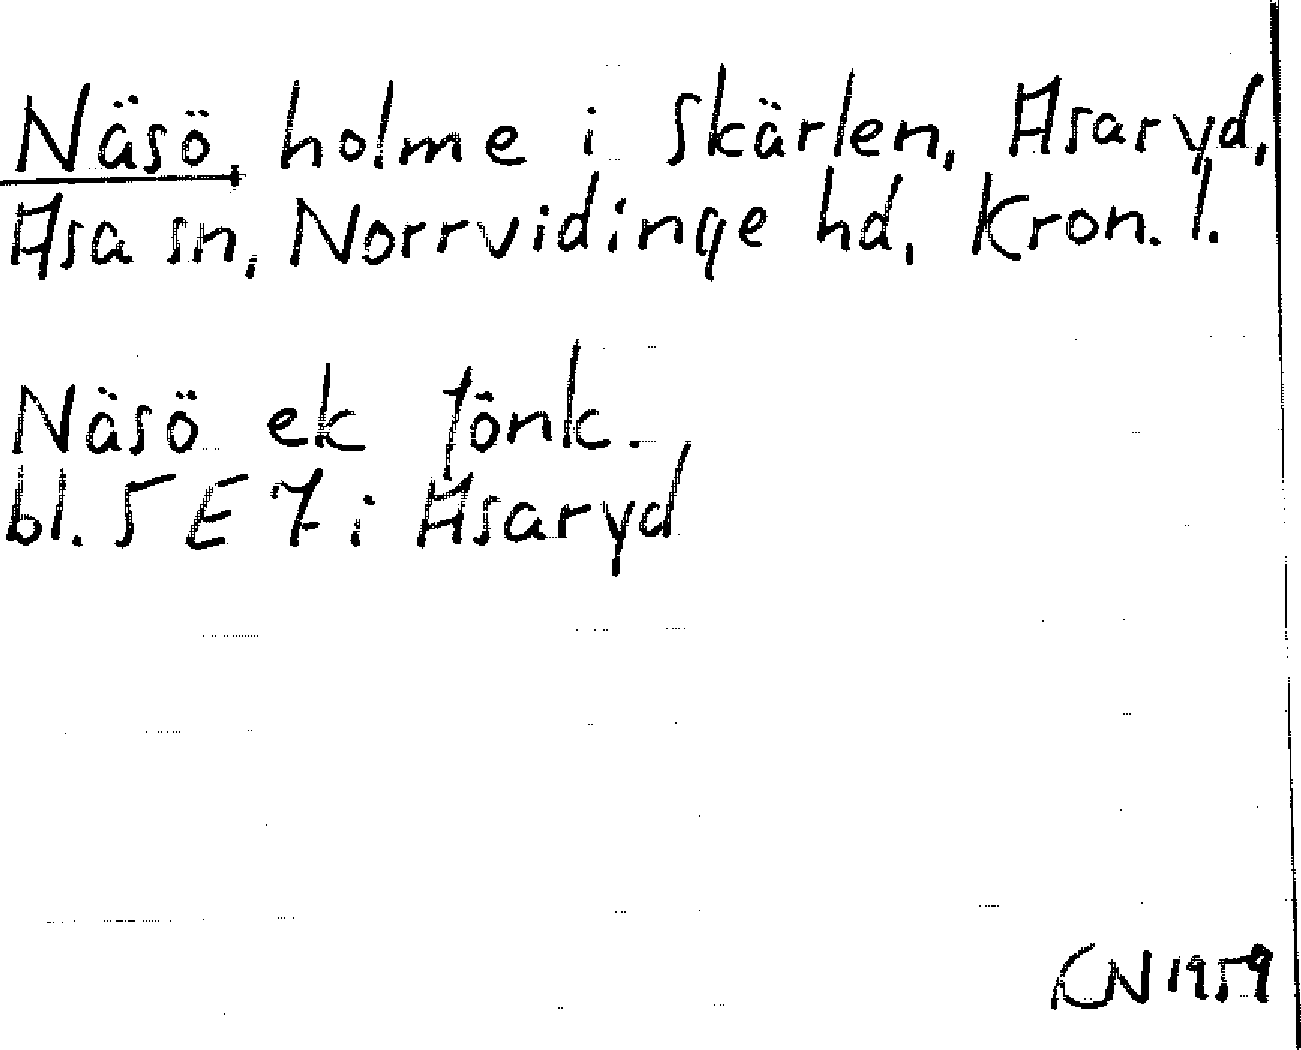 Näsö, holme i Skärlen, Asaryd,
Asa sn, Norrvidinge hd, Kron. l.
Näsö ek fönk.
bl. 5 E 7 i Asaryd
CN 1959